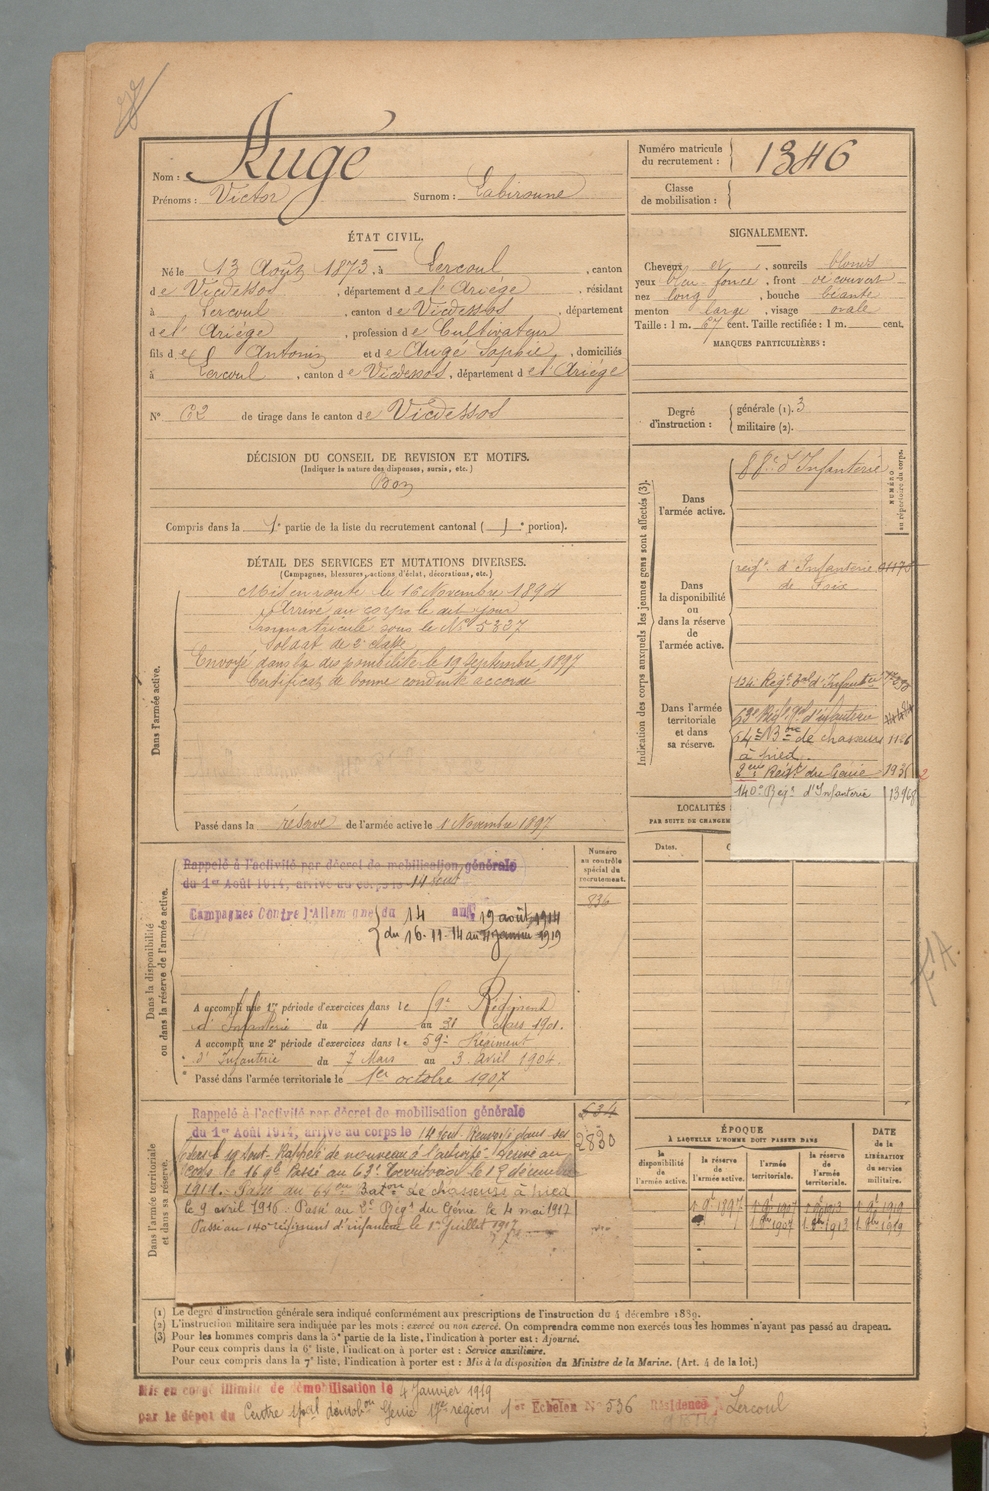 Augé
Nom :
Prénoms : Victor Surnom :
Numéro matricule du recrutement : 1346
Classe de mobilisation :
ÉTAT CIVIL.
Né le 13 Août 1873, à Lercoul, canton
de Vicdessos, département de l'Ariège, résidant
à Lercoul, canton de Vicdessos, département
de l'Ariège, profession de Cultivateur
fils de Antonin et de Augé Sophie, domiciliés
à Lercoul, canton de Vicdessos, département de l'Ariège
N° 62 de tirage dans le canton de Vicdessos
SIGNALEMENT.
Cheveux et, sourcils blonds
yeux bleu foncé, front découvert
nez long, bouche béante
menton large, visage ovale
Taille : 1 m. 67 cent. Taille rectifiée : 1 m. cent.
MARQUES PARTICULIÈRES :
Degré d'instruction : générale (1). 3
militaire (2).
DÉCISION DU CONSEIL DE REVISION ET MOTIFS.
(Indiquer la nature des dispenses, sursis, etc.)
Bon
Compris dans la 1e partie de la liste du recrutement cantonal ( e portion).
DÉTAIL DES SERVICES ET MUTATIONS DIVERSES.
(Campagnes, blessures, actions d'éclat, décorations, etc.)
Dans l'armée active.
Mis en route le 16 Novembre 1894
Arrivé au corps le dit jour
Immatriculé sous le N° 5337
Soldat de 2e classe
Envoyé dans la disponibilité le 19 Septembre 1897
Certificat de bonne conduite accordé
Passé dans la réserve de l'armée active le 1 Novembre 1897
Indication des corps auxquels les jeunes gens sont affectés (3).
NUMÉRO au répertoire du corps.
Dans l'armée active.
88e d'Infanterie
Dans la disponibilité ou dans la réserve de l'armée active.
regt d'Infanterie
de Foix
Dans l'armée territoriale et dans sa réserve.
124 Regt d'Infanterie
63e Regt d'infanterie
64e Bon de chasseurs 1166
à pied
2ème Regt du Génie
140e Regt d'Infanterie 13968
LOCALITÉS
PAR SUITE DE CHANGEM
Dates.
Dans la disponibilité ou dans la réserve de l'armée active.
Numéro au contrôle spécial du recrutement.
836
Rappelé à l'activité par décret de mobilisation générale
du 1er Août 1914, arrivé au corps le 14 août
Campagnes Contre l'Allemagne du 14 au 19 août 1914
du 16.11.14 au 4 janvier 1919
A accompli une 1re période d'exercices dans le 59e Régiment
d'Infanterie du 4 au 31 Mars 1901.
A accompli une 2e période d'exercices dans le 59e Régiment
d'Infanterie du 7 Mars au 3 avril 1904.
Passé dans l'armée territoriale le 1er octobre 1907
Dans l'armée territoriale et dans sa réserve.
2830
Rappelé à l'activité par décret de mobilisation générale
du 1er Août 1914, arrivé au corps le 14 août Renvoyé dans ses
foyers le 19 août. Rappelé de nouveau à l'activité. Arrivé au
corps le 16 9bre Passé au 63e Territorial le 12 décembre
1914. Passé au 64ème Baton de chasseurs à pied
le 9 avril 1916. Passé au 2e Regt du Génie le 4 mai 1917
Passé au 140e régiment d'infanterie le 1er Juillet 1917
ÉPOQUE
À LAQUELLE L'HOMME DOIT PASSER DANS
la disponibilité de l'armée active.
la réserve de l'armée active.
l'armée territoriale.
la réserve de l'armée territoriale.
DATE de la LIBÉRATION du service militaire.
1 9bre 1897
(1) Le degré d'instruction générale sera indiqué conformément aux prescriptions de l'instruction du 4 décembre 1889.
(2) L'instruction militaire sera indiquée par les mots : exercé ou non exercé. On comprendra comme non exercés tous les hommes n'ayant pas passé au drapeau.
(3) Pour les hommes compris dans la 5e partie de la liste, l'indication à porter est : Ajourné.
Pour ceux compris dans la 6e liste, l'indication à porter est : Service auxiliaire.
Pour ceux compris dans la 7e liste, l'indication à porter est : Mis à la disposition du Ministre de la Marine. (Art. 4 de la loi.)
Mis en congé illimité de démobilisation le 4 Janvier 1919
par le dépôt du Centre démobon Génie 17e région 1er Echelon N° 536 Résidence Lercoul